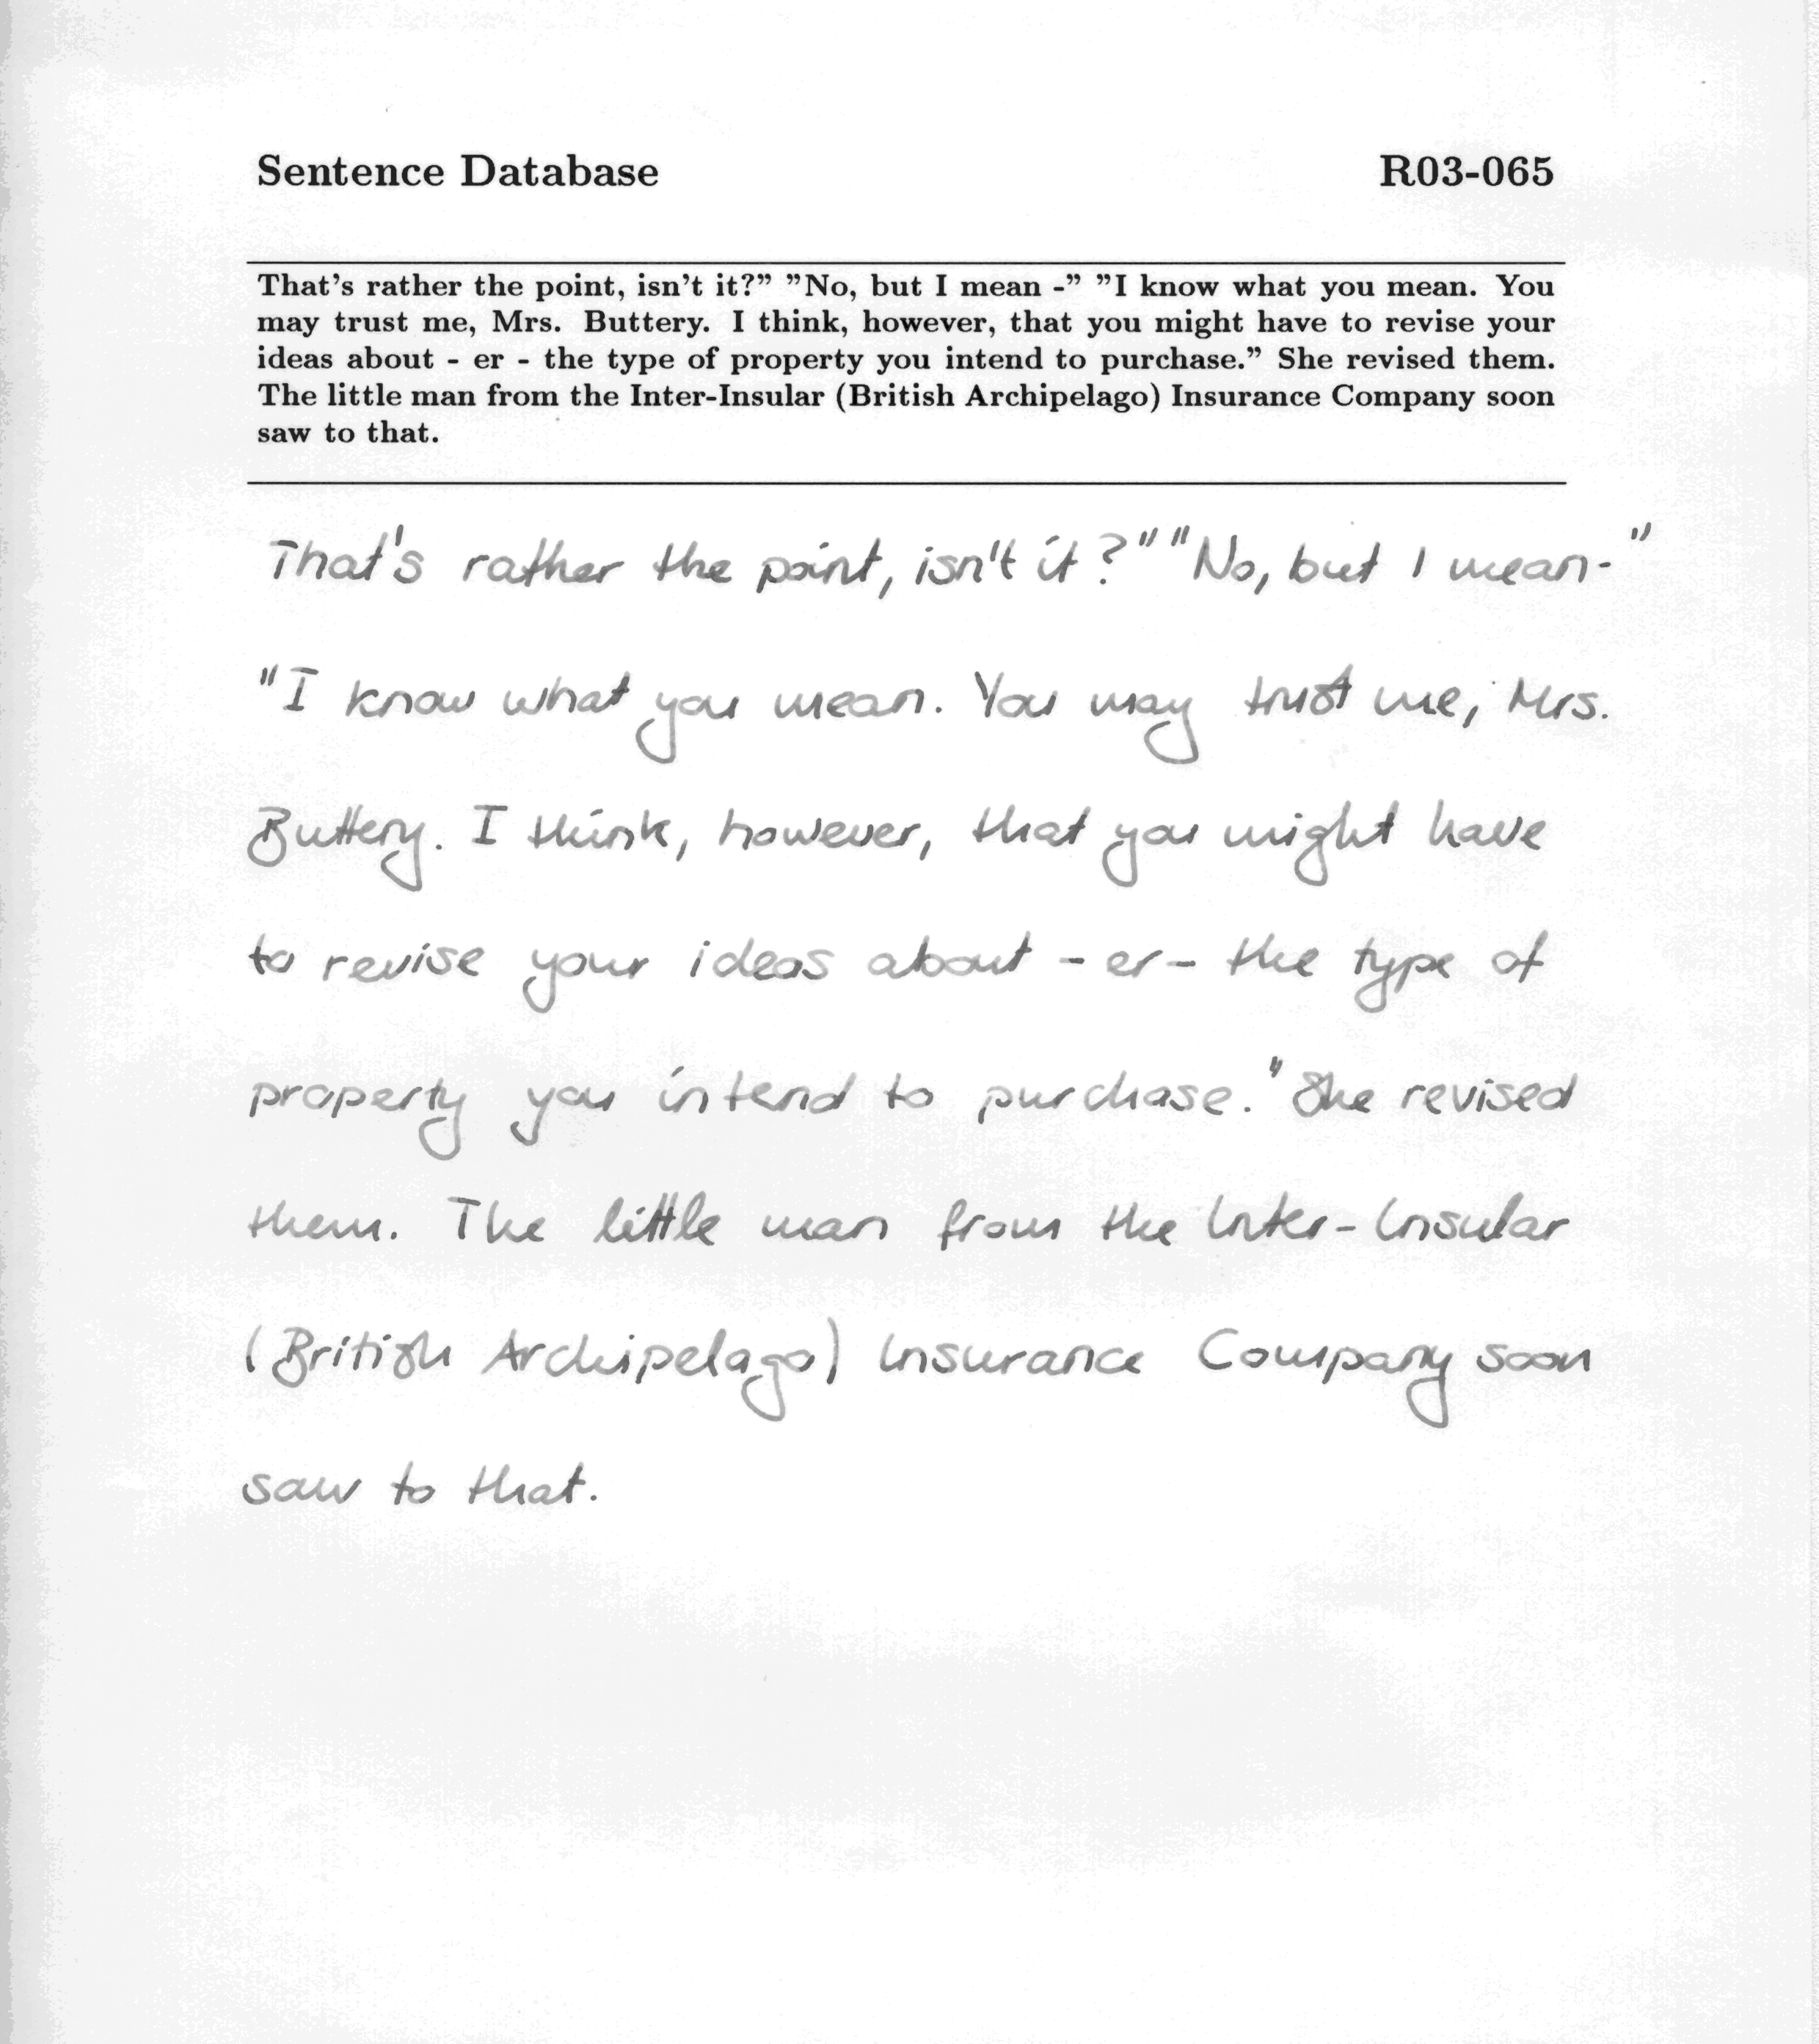 Sentence Database R03-065
That's rather the point, isn't it?” ”No, but I mean -” ”I know what you mean. You
may trust me, Mrs. Buttery. I think, however, that you might have to revise your
ideas about - er - the type of property you intend to purchase.” She revised them.
The little man from the Inter-Insular (British Archipelago) Insurance Company soon
saw to that.
That's rather the point, isn't it?" "No, but I mean-"
"I know what you mean. You may trust me, Mrs.
Buttery. I think, however, that you might have
to revise your ideas about - er - the type of
property you intend to purchase." She revised
them. The little man from the Inter-Insular
(British Archipelago) Insurance Company soon
saw to that.